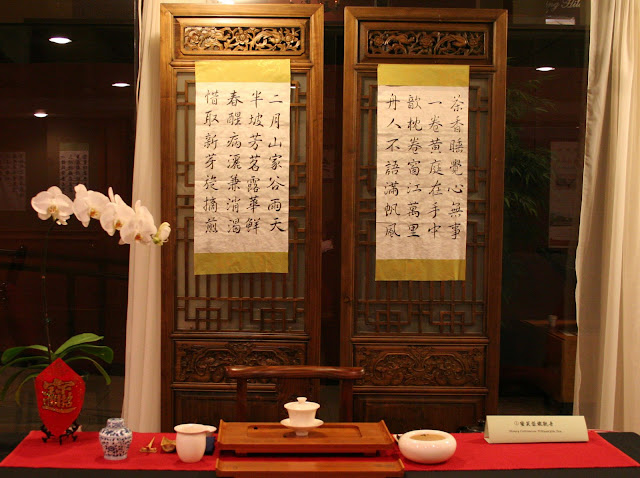 二月山家谷雨天
半坡芳茗露華鮮
春醒病灑兼消渴
惜取新芽旋摘煎
茶香睡覺心無事
一卷黄庭在手中
欹枕卷窗江萬里
舟人不語滿帆風